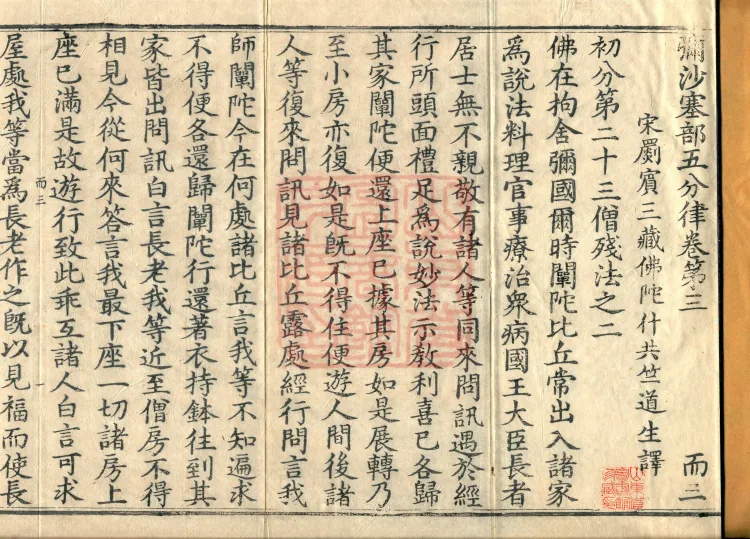 彌沙塞部五分律卷第三 而三
宋罽賓三藏佛陀什共竺道生譯
初分第二十三僧殘法之二
佛在拘舍彌國爾時闡陀比丘常出入諸家
爲說法料理官事療治衆病國王大臣長者
居士無不親敬有諸人等同來問訊遇於經
行所頭面禮足爲說妙法示教利喜已各歸
其家闡陀便還上座已據其房如是展轉乃
至小房亦復如是旣不得住便遊人間後諸
人等復來問訊見諸比丘露處經行問言我
師闡陀今在何處諸比丘言我等不知遍求
不得便各還歸闡陀行還著衣持鉢往到其
家皆出問訊白言長老我等近至僧房不得
相見今從何來答言我最下座一切諸房上
座已滿是故遊行致此乖互諸人白言可求
而三
屋處我等當爲長老作之旣以見福而使長